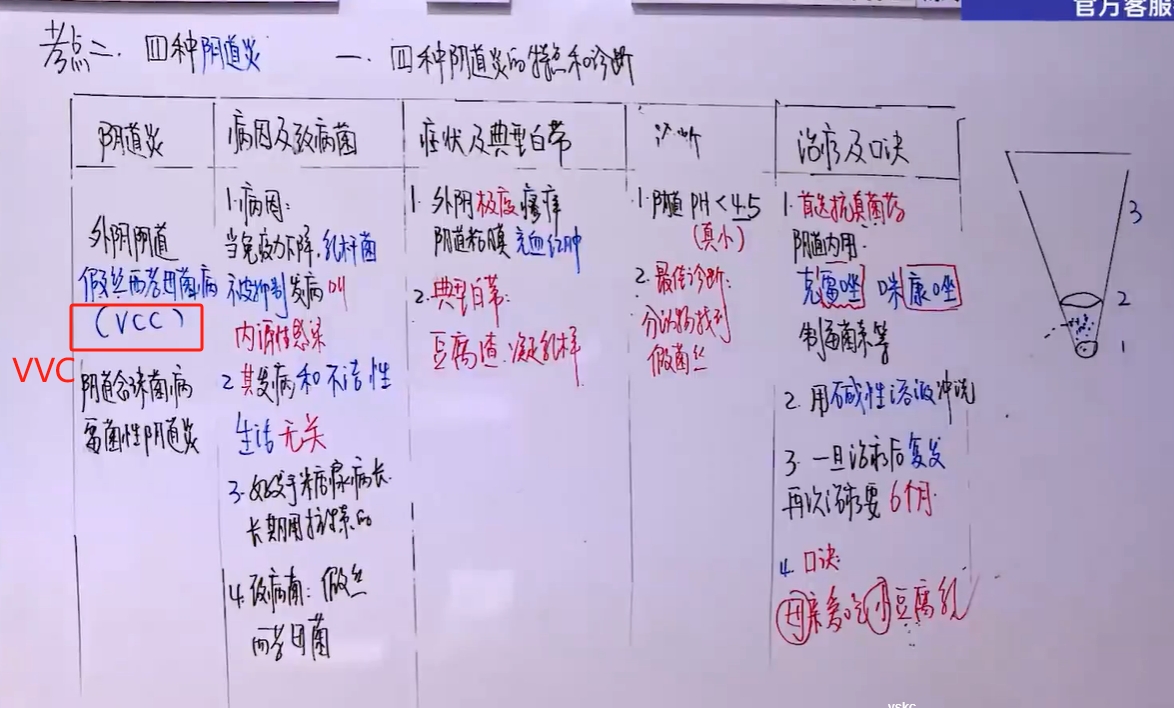 官方客服
考点二. 四种阴道炎 一. 四种阴道炎的特点和诊断
阴道炎
病因及致病菌
症状及典型白带
诊断
治疗及口诀
外阴阴道
假丝酵母菌病
(VCC)
VVC
阴道念珠菌病
霉菌性阴道炎
1.病因:
当免疫力下降,乳杆菌
被抑制发病叫
内源性感染
2.其发病和不洁性
生活无关
3.好发于糖尿病长
长期用抗菌药
4.致病菌: 假丝
酵母菌
1. 外阴极度瘙痒
阴道粘膜充血红肿
2.典型白带:
豆腐渣.凝乳样
1.阴道PH<4.5
(真小)
2.最佳诊断:
分泌物找到
假菌丝
1.首选抗真菌药
阴道内用.
克霉唑 咪康唑
制霉菌素等
2.用碱性溶液冲洗
3.一旦治疗后复发
再次治疗要6个月.
4.口诀:
母亲爱吃小豆腐乳
3
2
1
yskc